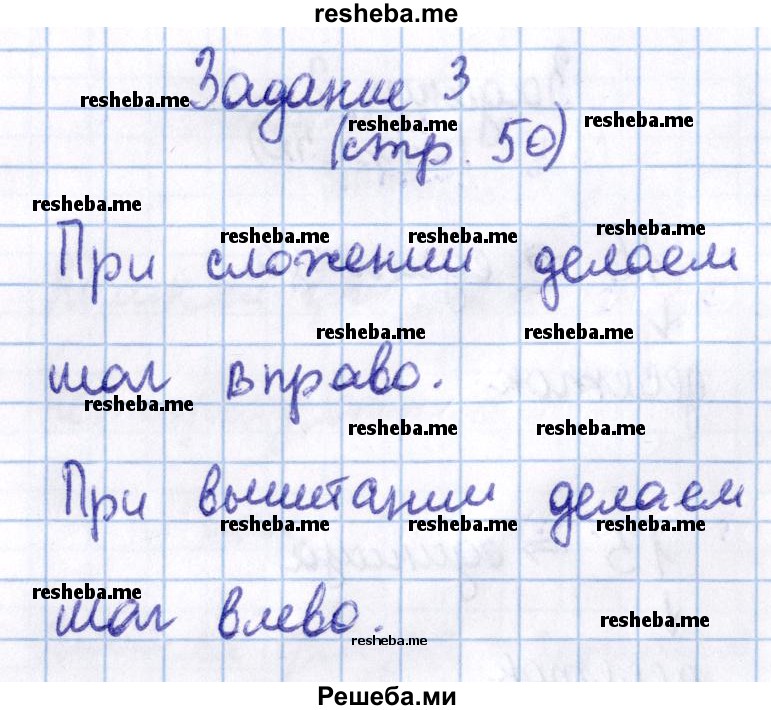 resheba.me
Задание 3
resheba.me
resheba.me resheba.me
(стр. 50)
resheba.me
resheba.me resheba.me resheba.me
При сложении делаем
resheba.me resheba.me
шаг вправо.
resheba.me
resheba.me resheba.me
При вычитании делаем
resheba.me resheba.me resheba.me
resheba.me
шаг влево.
resheba.me
resheba.me
Решеба.ми